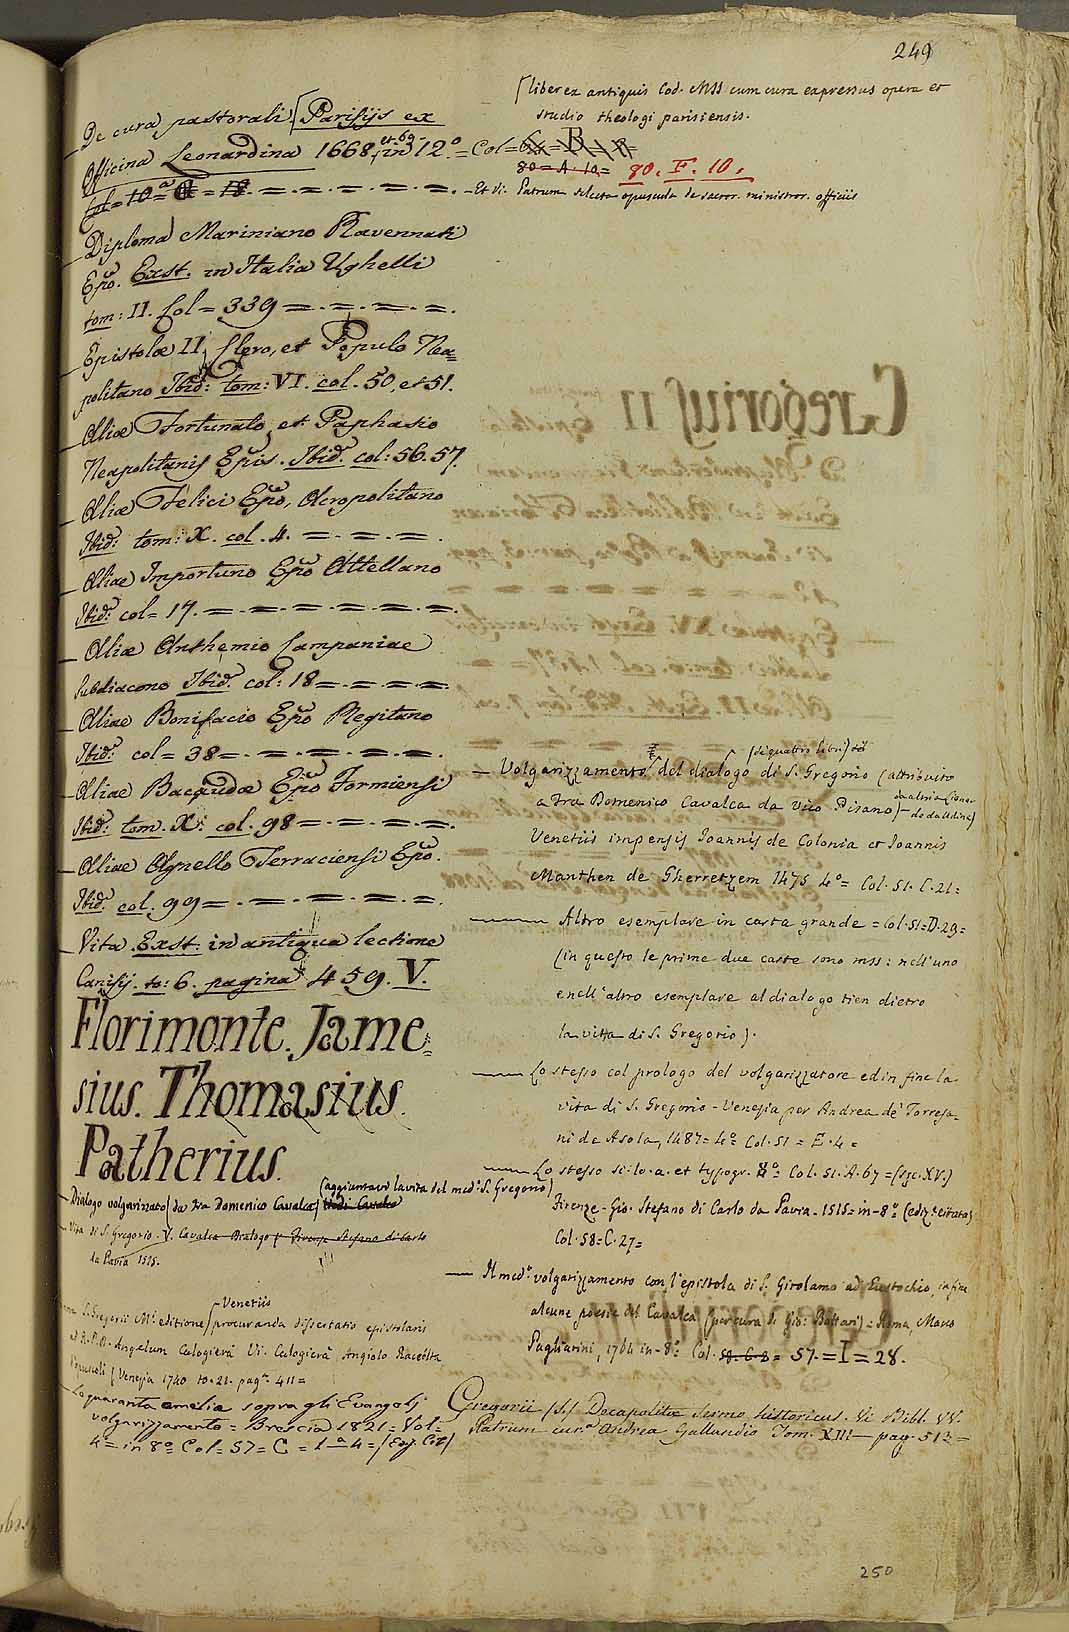 249
De cura pastorali. Parisijs ex
Officina Leonardina 1668. et 69 in 12.º = Col =
Col = 10 =
liber ex antiquis Cod. MSS cum cura expressus opera et
studio theologi parisiensis.
80 = A. 10 = 80. F. 10.
- Et di Patrum selecta opuscula de sacror. ministror. officiis
Diploma Mariniano Ravennati
Epõ. Exst. in Italia Ughelli
tom: II. Col = 339 = . = . = . = .
Epistolæ II. Clero, et Populo Nea=
politano Ibid: tom: VI. col. 50, et 51.
Aliæ Fortunato, et Paphasio
Neapolitanis Epis. Ibid. col: 56. 57.
Aliæ Felici Epõ, Acropolitano
Ibid: tom: X. col. 4. = . = . = .
Aliae Importuno Epõ Attellano
Ibid: col = 17. = . = . = . = . = . = .
Aliæ Anthemio Campaniae
Subdiacono Ibid. col: 18 = . = . = . = .
Aliae Bonifacio Epõ Regitano
Ibid: col = 38 = . = . = . = . = .
Aliae Bacaudæ Epõ Formiensi
Ibid: tom. X: col. 98 = . = . = . = .
Aliae Agnello Terraciensi Epõ.
Ibid. col. 99 = . = . = . = . = .
Vita. Exst. in antiqua lectione
Canisij. to: 6. pagina 459. V.
Florimonte. Jame=
sius. Thomasius.
Patherius.
Dialogo volgarizzato (da Fra Domenico Cavalca)
(aggiuntavi la vita del med.º S. Gregorio)
Vita di S. Gregorio. V. Cavalca Dialogo Firenze Stefano di Carlo
da Pavia 1515.
S. Gregorii M. editione Venetiis procuranda dissertatio epistolaris
ad R. P. D. Angelum Calogierà Vi. Calogierà Angiolo Raccolta
d'opuscoli (Venezia 1740 to. 21. pag.ª 411 =
Le quaranta omelie sopra gli Evangelj
volgarizzamento = Brescia 1821 = Vol =
4 = in 8º Col = 57 = C = 1 a 4 = (Ediz. Cit.)
Volgarizzamento del dialogo di S. Gregorio (attribuito
(di quattro libri)
a Fra Domenico Cavalca da Vico Pisano) -
da altri a Leonardo da Udine)
Venetiis impensis Ioannis de Colonia et Ioannis
Manthen de Gherretzem 1475 4º = Col. 51. C. 21 =
Altro esemplare in carta grande = Col. 51 = D. 29 =
(in questo le prime due carte sono mss: nell'uno
e nell'altro esemplare al dialogo tien dietro
la vita di S. Gregorio).
Lo stesso col prologo del volgarizzatore ed in fine la
vita di S. Gregorio - Venezia per Andrea de' Torresa-
ni de Asola, 1487 = 4º Col. 51 = E. 4 =
Lo stesso si: lo. a. et typogr. 8º Col. 51. A. 67 = (sec. XV.)
Firenze - Gio. Stefano di Carlo da Pavia - 1515 = in - 8º (ediz.e citata)
Col. 58 = C. 27 =
Il med.º volgarizzamento con l'epistola di S. Girolamo ad Eustochio, in fine
alcune poesie del Cavalca (per cura di Gio: Bottari) = Roma, Marco
Pagliarini, 1764 in - 8º Col. 58. C. 8 = 57. = I = 28.
Gregorii (S.) Decapolitæ Sermo historicus. Vi Bibl. VV.
Patrum cur.ª Andrea Gallandio Tom. XIII - pag. 513 =
250